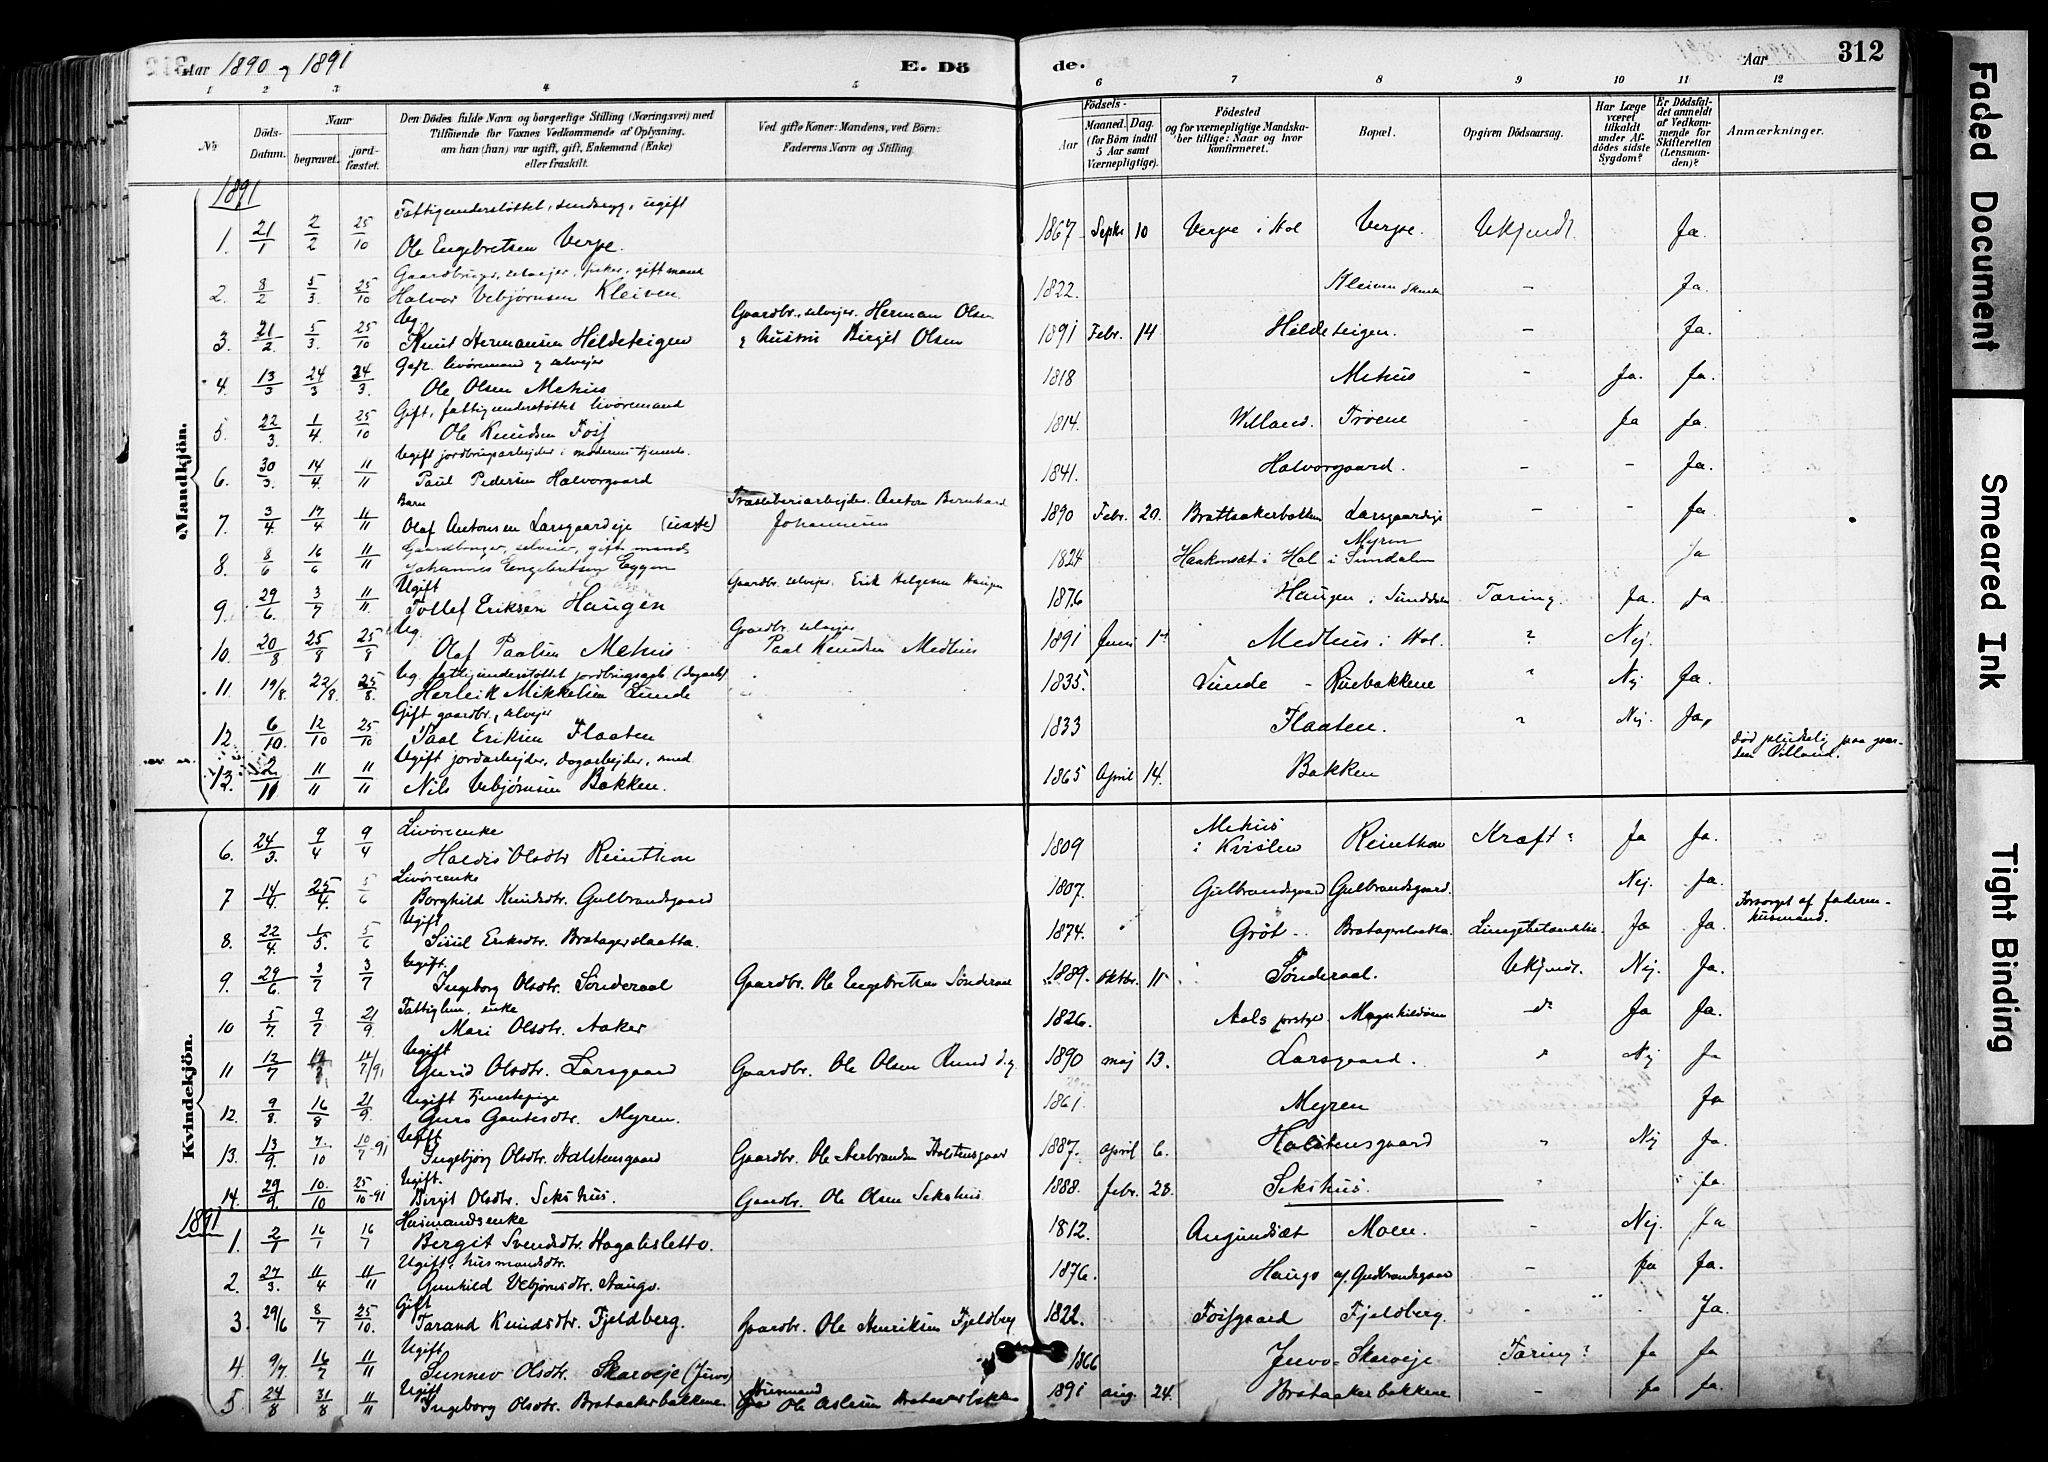 Aar 1890 og 1891
E. Dö
de.
Aar
312
1 2 3 4 5 6 7 8 9 10 11 12
No
Döds-Datum.
Naar
begravet.
jord-fæstet.
Den Dödes fulde Navn og borgerlige Stilling (Næringsvei) med
Tilföiende for Voxnes Vedkommende af Oplysning,
om han (hun) var ugift, gift, Enkemand (Enke)
eller fraskilt.
Ved gifte Koner: Mandens, ved Börn:
Faderens Navn og Stilling.
Födsels-
Aar
Maaned. Dag.
(for Börn indtil
5 Aar samt
Værnepligtige).
Födested
og for værnepligtige Mandska-
ber tillige: Naar og hvor
konfirmeret.
Bopæl.
Opgiven Dödsaarsag.
Har Læge
været
tilkaldt
under Af-
dödes sidste
Sygdom?
Er Dödsfal-
det anmeldt
af Vedkom-
mende for
Skifteretten
(Lensman-
den)?
Anmærkninger.
Mandkjön.
1891
Fattigunderstøttet, sindssyg, ugift
1. 21/1 2/2 25/10 Ole Engebretsen Verpe. 1867 Septr 10 Verpe i Hol Verpe. Ukjendt. Ja.
Gaardbruger, selveier, gift mand
2. 8/2 5/3 25/10 Halvor Vebjørnsen Kleiven. 1822. Kleiven - Ja.
Ug. Gaardbr. selvejer Herman Olsen
3. 21/2 5/3 25/10 Knut Hermansen Hildeteigen & hustru Birgit Olsen 1891 Febr. 14 Hildeteigen. - Ja.
Gift. livøremand og selvejer
4. 13/3 24/3 24/3. Ole Olsen Mehus 1818 Mehus - Ja. Ja.
Gift, fattigunderstøttet livøremand
5. 22/3. 1/4 25/10 Ole Knudsen Fosf 1814. Villand. Trøene - Ja Ja.
Ugift jordbrugsarbejder i moderens tjeneste
6. 30/3. 14/4 11/11 Paul Pedersen Halvorgaard 1841. Halvorgaard. - - Ja.
Barn Træsliberiarbejder Anton Bernhard
7. 3/4. 17/4 11/11 Olaf Antonsen Larsgaardeje (uægte) Johannesen 1890 Febr. 20. Brattaakerbakken Larsgaardeje - - Ja.
Gaardbruger, selveier, gift mand Myren
8. 8/6 16/6 11/11 Johannes Engebretsen Eggen 1824 Haakonsæt i Hol i Sundalen Ja
Ugift Gaardbr. selvejer Erik Helgesen Haugen
9. 29/6. 3/7 11/11 Tollef Eriksen Haugen 1876 Haugen i Sunddalen Tæring. Ja. Ja
Ug. Gaardbr. selvejer
10. 20/8 25/8 25/8 Olaf Paalsen Mehus Paal Knudsen Medhus 1891 Juni Medhus i Hol. " Nej.
Ug. fattigunderstøttet jordbrugsarb. (dagarb)
11. 19/8. 22/8. 25/8. Herleik Mikkelsen Lunde 1835. Lunde - Ruebakkene " Nej Ja.
Gift gaardbr., selvejer
12. 6/10. 12/10 25/10 Paal Eriksen Flaaten 1833 Flaaten. " Nej. Ja.
Ugift jordarbejder, dagarbejder, Død pludselig paa gaar-
13. 2/11 11/11 11/11 Nils Vebjørnsen Bakken. 1865 April 14. Bakken den Villand.
Kvindekjön.
Livøreenke Mehus
6. 24/3. 9/4 9/4 Haldis Olsdtr Reinthon 1809 i Kvislen Reinthon Kræft? Ja Ja.
Livøreenke
7 14/4. 25/4. 5/6 Borghild Knudsdtr. Gulbrandsgaard 1807. Gulbrandsgaard Gulbrandsgaard. Nej. Ja.
Ugift Forsørget af faderen
8. 22/4. 1/5. 5/6 Sisil Eriksdtr. Bratagerslaatta. 1874. Grøt Bratagerslaatta. Lungebetændelse. Ja Ja. husmand.
Ugift.
9. 29/6. 3/7 3/7 Ingeborg Olsdtr. Sønderaal Gaardbr. Ole Engebretsen Sønderaal 1889. Oktbr. 11 Sønderaal. Ukjendt. Nej. Ja.
Fattiglem, enke
10 5/7. 9/7 21/9. Mari Olsdtr. Aaker 1826. Aals prstgd. Magnhildøen do Ja Ja.
Ugift
11 12/7 14/7/91 Gurid Olsdtr. Larsgaard Gaardbr. Ole Olsen Rund 1890 Maj 13. Larsgaard. " Nej Ja
Ugift tjenestepige
12. 9/8 16/8 21/9. Guro Gautesdtr. Myren. 1861. Myren Ja
Ugift
13. 13/9. 7/10 10/7-91 Ingebjørg Olsdtr. Halstensgaard Gaardbr. Ole Asbrandsen Holstensgaar 1887. April 6. Halstensgaard " Nej Ja.
Ugift.
14. 29/9. 10/10 25/10-91 Bergit Olsdtr. Sekshus. Gaardbr. Ole Olsen Sekshus 1888 febr. 28. Sekshus. " Ja.
1891
Husmandsenke
1. 2/1 16/1 16/7 Bergit Svendsdtr. Hagalisletto. 1812. Angundsæt Moen. - Nej. Ja
Ugift, husmandsdtr.
2. 27/3. 11/4 11/11 Gunhild Vebjørnsdtr. Haugo. 1876. Haugo af Gudbrandsgaar - Ja Ja.
Gift
3. 29/6 8/7 25/10. Tarand Knudsdtr. Fjeldberg. Gaardbr. Ole Henriksen Fjeldberg 1822. Fosfgaard Fjeldberg. - Ja.
Ugift
4. 9/7. 16/7 11/11 Sunnev Olsdtr. Skarveje (Juvo) 1866 Juvo - Skarveje Tæring? Ja Ja
Ugift Husmand
5. 24/8 31/8 11/11 Ingeborg Olsdtr. Brataakerbakkene Ole Aslesen Brataakerbakken 1891 Aug. 24. Brataakerbakkene - Ja Ja.
Faded Document
Smeared Ink
Tight Binding